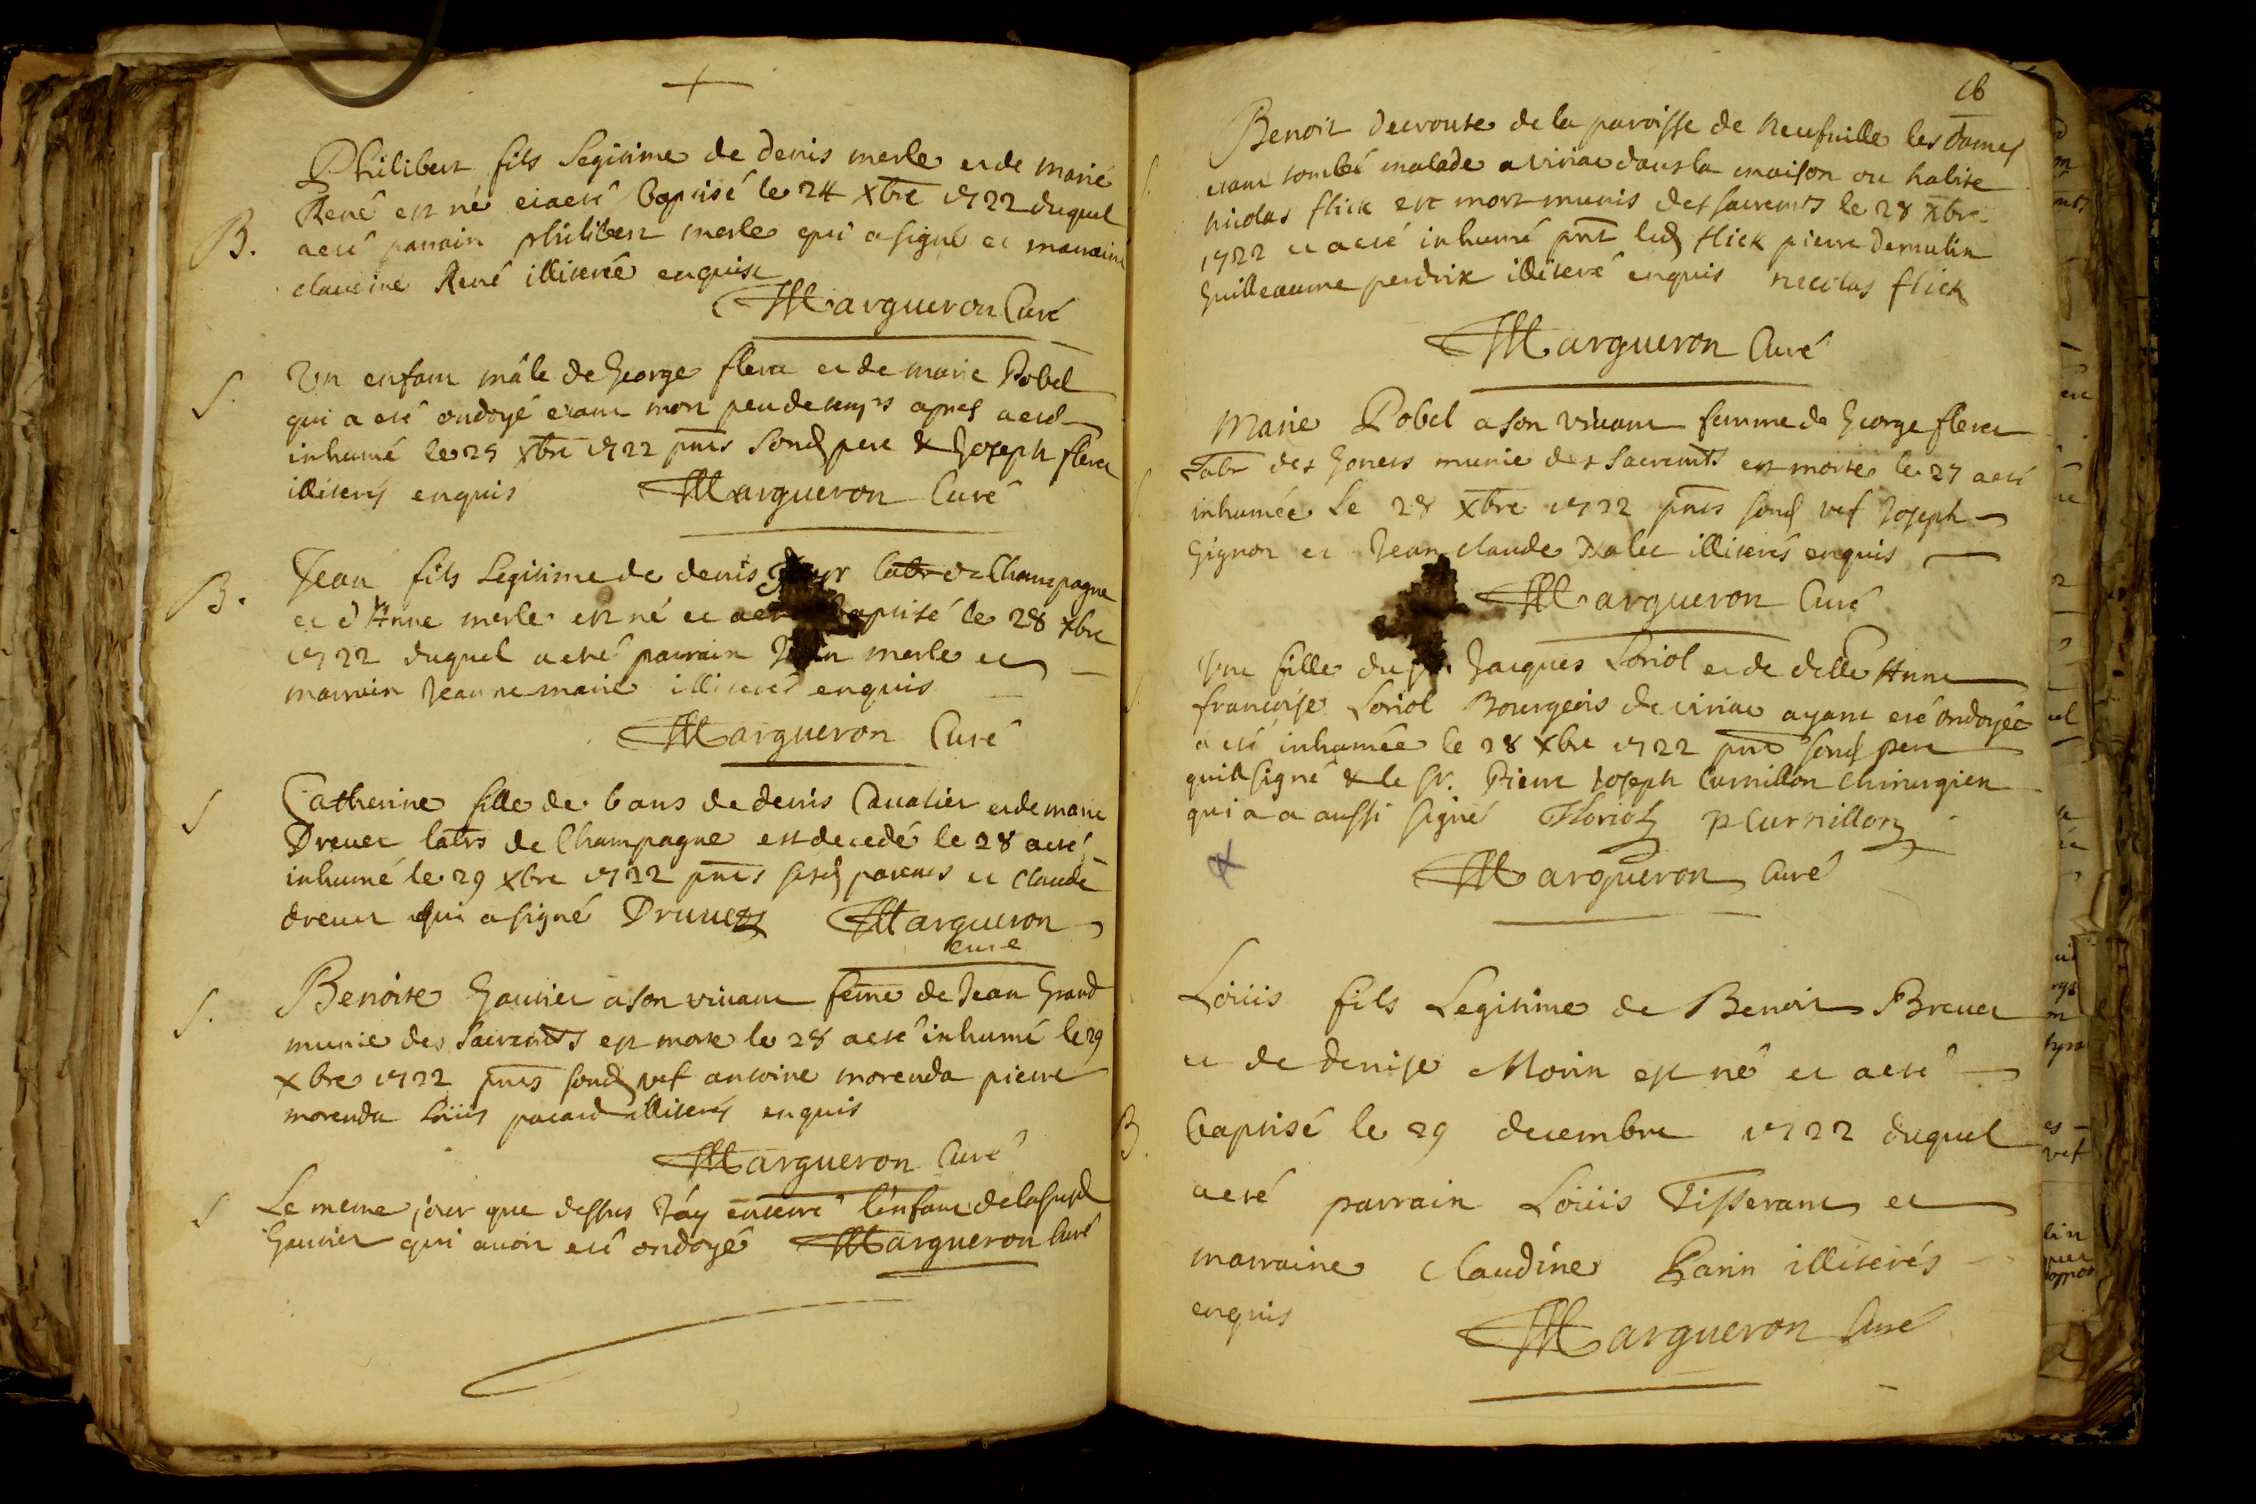 Philibert fils legitime de denis merle et de marie
René est né et a eté baptisé le 24 xbre 1722 duquel
B. a eté parrain philibert merle qui a signé et marraine
claudine René illiterée enquise
Margueron Curé
S. Un enfant mâle de George fleret et de marie Pobel
qui a eté ondoyé etant mort peu de temps apres a eté
inhumé le 25 xbre 1722 pnts sond pere & Joseph fleret
illiterés enquis Margueron Curé
Jean fils Legitime de denis labr de Champagne
B. et d'Anne merle est né et a eté baptisé le 28 xbre
1722 duquel a eté parrain Jean merle et
marrain Jeanne marie illiterés enquis
Margueron Curé
S Catherine fille de 6 ans de denis Cavalier et de marie
Drevet labrs de Champagne est decedé le 28 a eté
inhumé le 29 xbre 1722 pnts sesd parents et claude
drevet qui a signé Druuet Margueron
curé
S. Benoite Gautier a son vivant feme de Jean Grand
munie des Sacremts est morte le 28 a eté inhumé le 29
xbre 1722 pnts sond vef antoine morenda pierre
morenda Loüis pacard illiterés enquis
Margueron Curé
S Le meme jour que dessus J'ay enterré l'enfant de la susd
Gautier qui avoit eté ondoyé Margueron Curé
Benoit decroute de la paroisse de Neufville les dames
S. etant tombé malade a viriac dans la maison ou habite
nicolas flick est mort munis des sacremts le 28 xbre
1722 et a eté inhumé pnt led flick pierre demulin
Guilleaume perdrix illiteré enquis nicolas flick
Margueron Curé
Marie Pobel a son vivant femme de George fleret
labr des Gonets munie des Sacremts est morte le 27 a eté
inhumée Le 28 xbre 1722 pnts sond vef Joseph
Gignon et Jean claude illiterés enquis
Margueron Curé
Une fille du Sr. Jacques Loriol et de delle Anne
francoise Loriol Bourgeois de viriac ayant eté ondoyée
a eté inhumée le 28 xbre 1722 pnt sond pere
qui a signé & le Sr. Pierre Joseph Curnillon Chirurgien
qui a a aussi signé JLoriol PCurnillon
Margueron Curé
Loüis fils Legitime de Benoit Brevet
et de denise Morin est né et a eté
B. baptisé le 29 decembre 1722 duquel
a eté parrain Loüis Tisserant et
marraine Claudine Garin illiterés
enquis
Margueron Curé